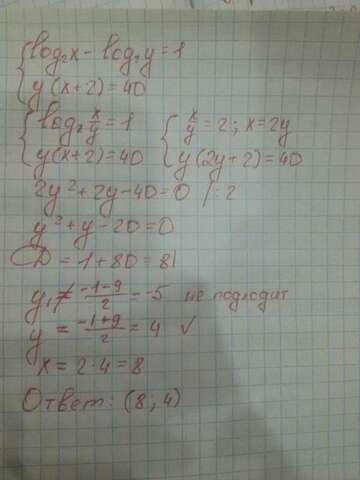 log₂x - log₂y = 1
y(x+2) = 40
log₂ x/y = 1 x/y = 2; x = 2y
y(x+2) = 40 y(2y+2) = 40
2y² + 2y - 40 = 0 /:2
y² + y - 20 = 0
D = 1 + 80 = 81
y₁ ≠ (-1-9)/2 = -5 не подходит
y = (-1+9)/2 = 4 ✓
x = 2·4 = 8
Ответ: (8; 4)